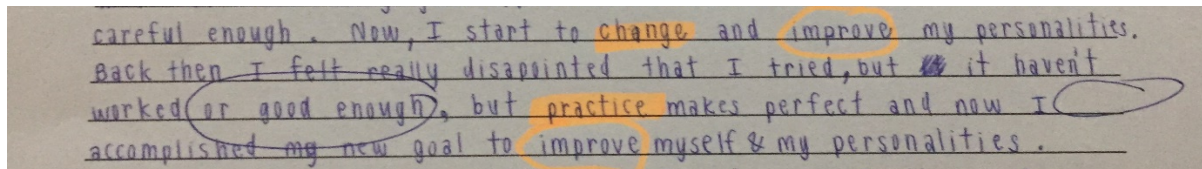 careful enough. Now, I start to change and improve my personalities.
Back then I felt really disappointed that I tried, but it haven't
worked (or good enough), but practice makes perfect and now I
accomplished my new goal to improve myself & my personalities.